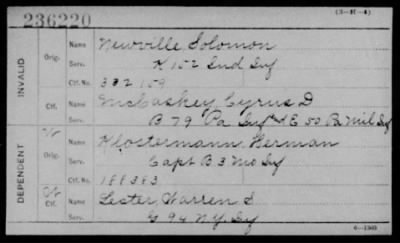 236220
(3-H-4)
INVALID
Orig. Name Newville, Solomon
Serv. K 152 Ind Inf
Ctf. No. 332 159
Ctf. Name McCaskey, Cyrus D
Serv. B 79 Pa Inf & E 50 Pa Mil Inf
DEPENDENT
W Orig. Name Klostermann, Herman
Serv. Capt B 3 Mo Inf
Ctf. No. 188383
Ctf. Name Lester, Warren S
Serv. G 94 N.Y. Inf
6-1503